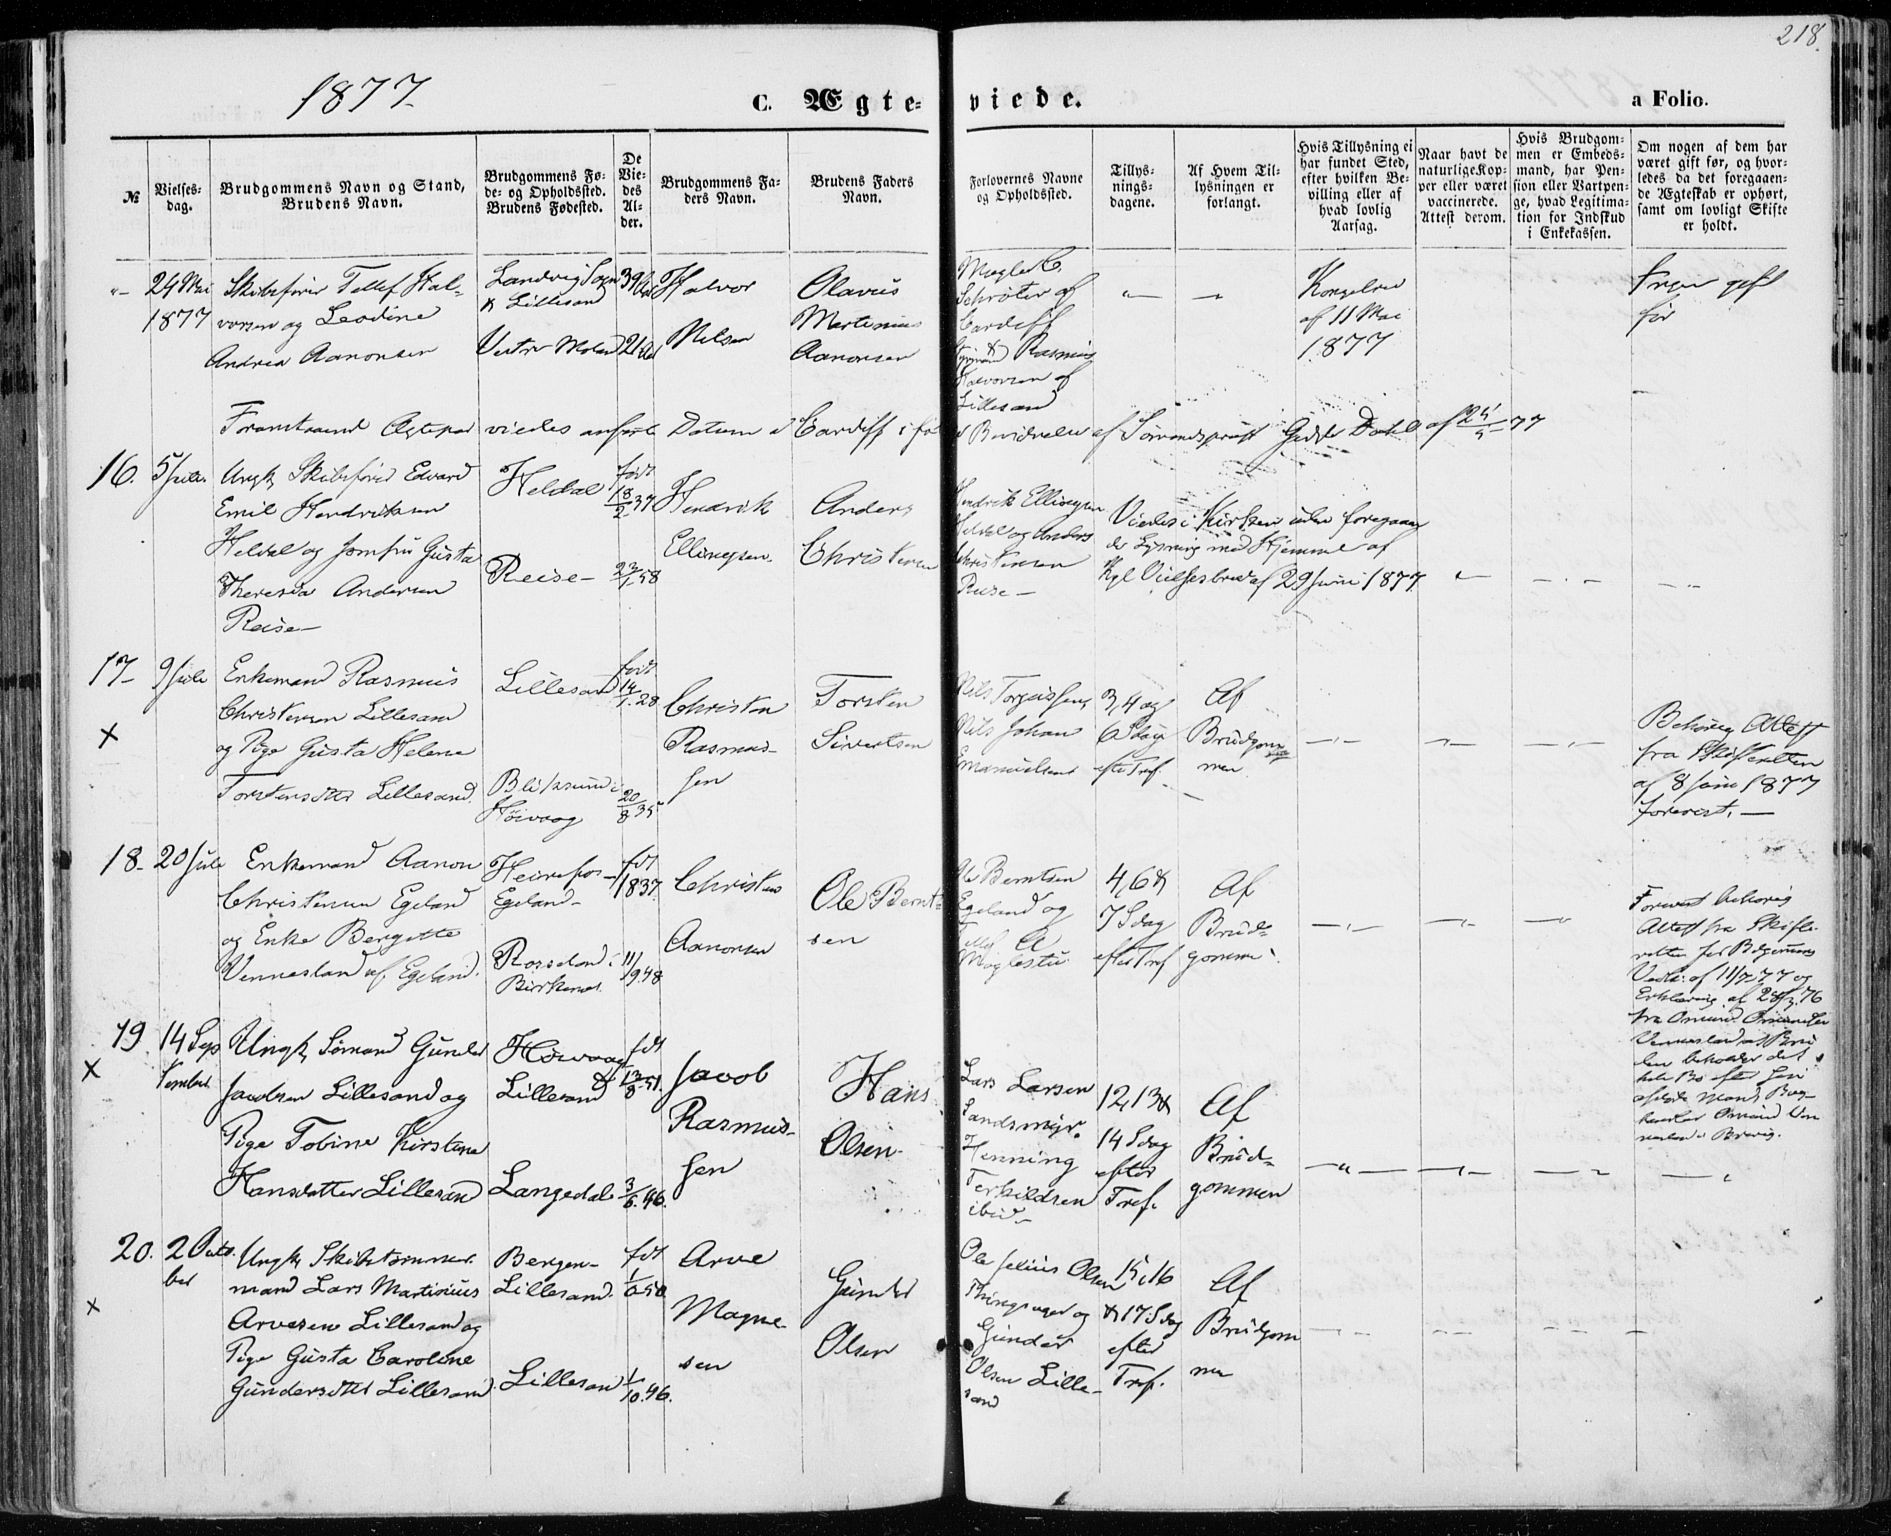 218.
1877.
C. Ægte-
viede.
a Folio.
№
Vielses-
dag.
Brudgommens Navn og Stand,
Brudens Navn.
Brudgommens Fø-
de- og Opholdssted.
Brudens Fødested.
De
Vie-
des
Al-
der.
Brudgommens Fa-
ders Navn.
Brudens Faders
Navn.
Forlovernes Navne
og Opholdssted.
Tillys-
nings-
dagene.
Af Hvem Til-
lysningen er
forlangt.
Hvis Tillysning ei
har fundet Sted,
efter hvilken Be-
villing eller af
hvad lovlig
Aarsag.
Naar havt de
naturlige Kop-
per eller været
vaccinerede.
Attest derom.
Hvis Brudgom-
men er Embeds-
mand, har Pen-
sion eller Vartpen-
ge, hvad Legitima-
tion for Indskud
i Enkekassen.
Om nogen af dem har
været gift før, og hvor-
ledes da det foregaaen-
de Ægteskab er ophørt,
samt om lovligt Skifte
er holdt.
24 Mai
1877
Skibsfører Tellef Hal-
vorsen og Leodine
Andrea Aanonsen
Landvig Sogn
& Lillesand
Vestre Moland
39
21
Halvor
Nilsen
Olavus
Martinius
Aanonsen
Schrøter af
Cardiff
Rasmus
Halvorsen af
Lillesand
Kongebrev
af 11 Mai
1877
gift
før
Foranstaaende Ægtepar viedes anførte Datum i Cardiff
af Sømandsprest Dahl af 25/5 77
16.
5 Juli
Ungk. Skibsfører Edvard
Emil Hendriksen
Heldal og Jomfru Gusta
Theresia Andersen
Reise
Heldal
Reise
født
18/2 37
23/1 58
Hendrik
Ellingsen
Anders
Christensen
Hendrik Ellingsen
Heldal og Anders
Christensen
Reise
Viedes i Kirken uden foregaaen-
de Lysning med Hjemmel af
Kgl Vielsesbrev af 29 Juni 1877
17
9 Juli
×
Enkemand Rasmus
Christensen Lillesand
og Pige Gusta Helene
Torstensdtter Lillesand
Lillesand
Bliksund i
Høivaag
født
14/1 28
20/8 35
Christen
Rasmus-
sen
Torsten
Sivertsen
Nils Torjussen,
Nils Johan
Emanuelsen
3, 4 og
6 Sdag
efter Tref.
Af
Brudgom-
men
Behørig Attest
fra Skifteretten
af 8 Juni 1877
forevist.
18
20 Juli
Enkemand Aanon
Christensen Egeland
og Enke Bergitte
Vennesland af Egeland
Heirefos
Egeland
Rosseland i
Birkenes
født
1837
11/9 48
Christen
Aanonsen
Ole Bernt-
sen
Ole Berntsen
Egeland og
Møglestu
4, 6 &
7 Sdag
efter Tref
Af
Brud-
gommen
Forevist behørig
Attest fra Skifte-
retten for Brudgommens
af 11/7 77 og
Erklæring af
fra Omund
Vennesland at Bru-
den beholder det
hele Bo efter sin
afdøde Mand
19
14 Sep-
tember
×
Ungk. Sømand Gunder
Jacobsen Lillesand og
Pige Tobine Kirstine
Hansdatter Lillesand
Høivaag
& Lillesand
Langedal
født
13/8 51
3/6 46.
Jacob
Rasmus-
sen
Hans
Olsen
Lars Larsen
Landsmyr
Henning
Terkildsen
ibid
12, 13 &
14 Sdag
efter
Tref.
Af
Brud-
gommen
20.
2 Octo-
ber
×
Ungk. Skibstømmer-
mand Lars Martinius
Arvesen Lillesand og
Pige Gusta Caroline
Gundersdtter Lillesand
Bergen
Lillesand
Lillesand
født
1/10 46.
Arve
Magne-
sen
Gunder
Olsen
Ole Julius Olsen
Thingsager og
Gunder
Olsen Lille-
sand
15, 16
& 17 Sdag
efter
Tref.
Af
Brudgom
men